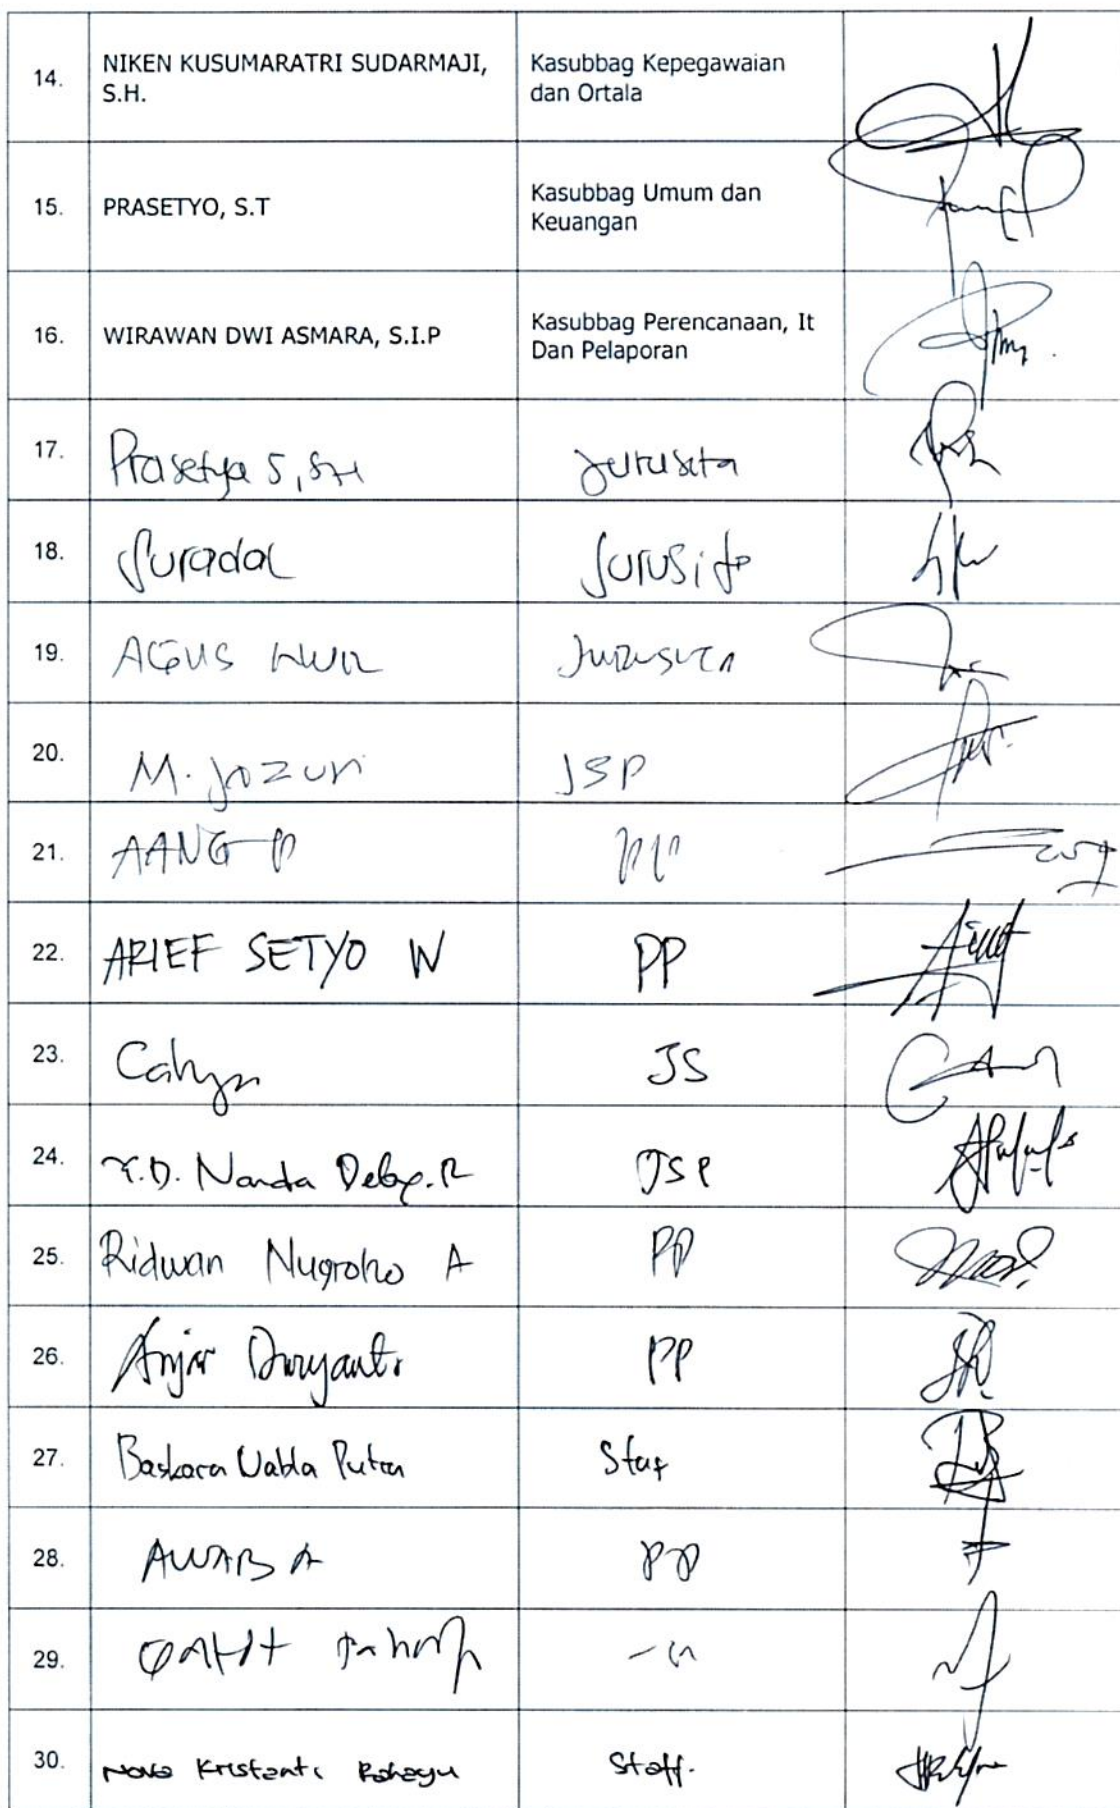 14. NIKEN KUSUMARATRI SUDARMAJI, Kasubbag Kepegawaian
S.H. dan Ortala
15. PRASETYO, S.T Kasubbag Umum dan
Keuangan
16. WIRAWAN DWI ASMARA, S.I.P Kasubbag Perencanaan, It
Dan Pelaporan
17. Prasetya S, SH Jurusita
18. Suradal Jurusita
19. AGUS NUR Jurusita
20. M. Jazuri JSP
21. AANG P PP
22. ARIEF SETYO W PP
23. Cahya JS
24. Y.D. Nanda Deby. R JSP
25. Ridwan Nugroho A PP
26. Anjar Duryanti PP
27. Baskara Putra Staf
28. AWAB A PP
29.
30. Nova Kristanti Rahayu Staff.